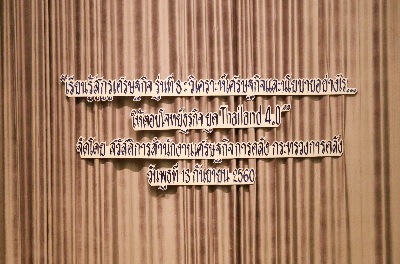 "เรียนรู้สู้กรูเศรษฐกิจ รุ่นที่ 8 : วิเคราะห์เศรษฐกิจและนโยบายอย่างไร...
ให้ตอบโจทย์ธุรกิจ ยุค Thailand 4.0"
จัดโดย สวัสดิการสำนักงานเศรษฐกิจการคลัง กระทรวงการคลัง
วันพุธที่ 13 กันยายน 2560